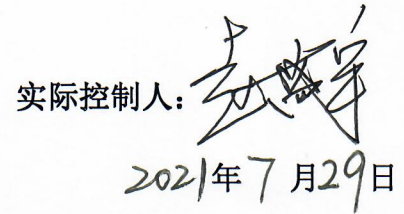 实际控制人：
2021年7月29日